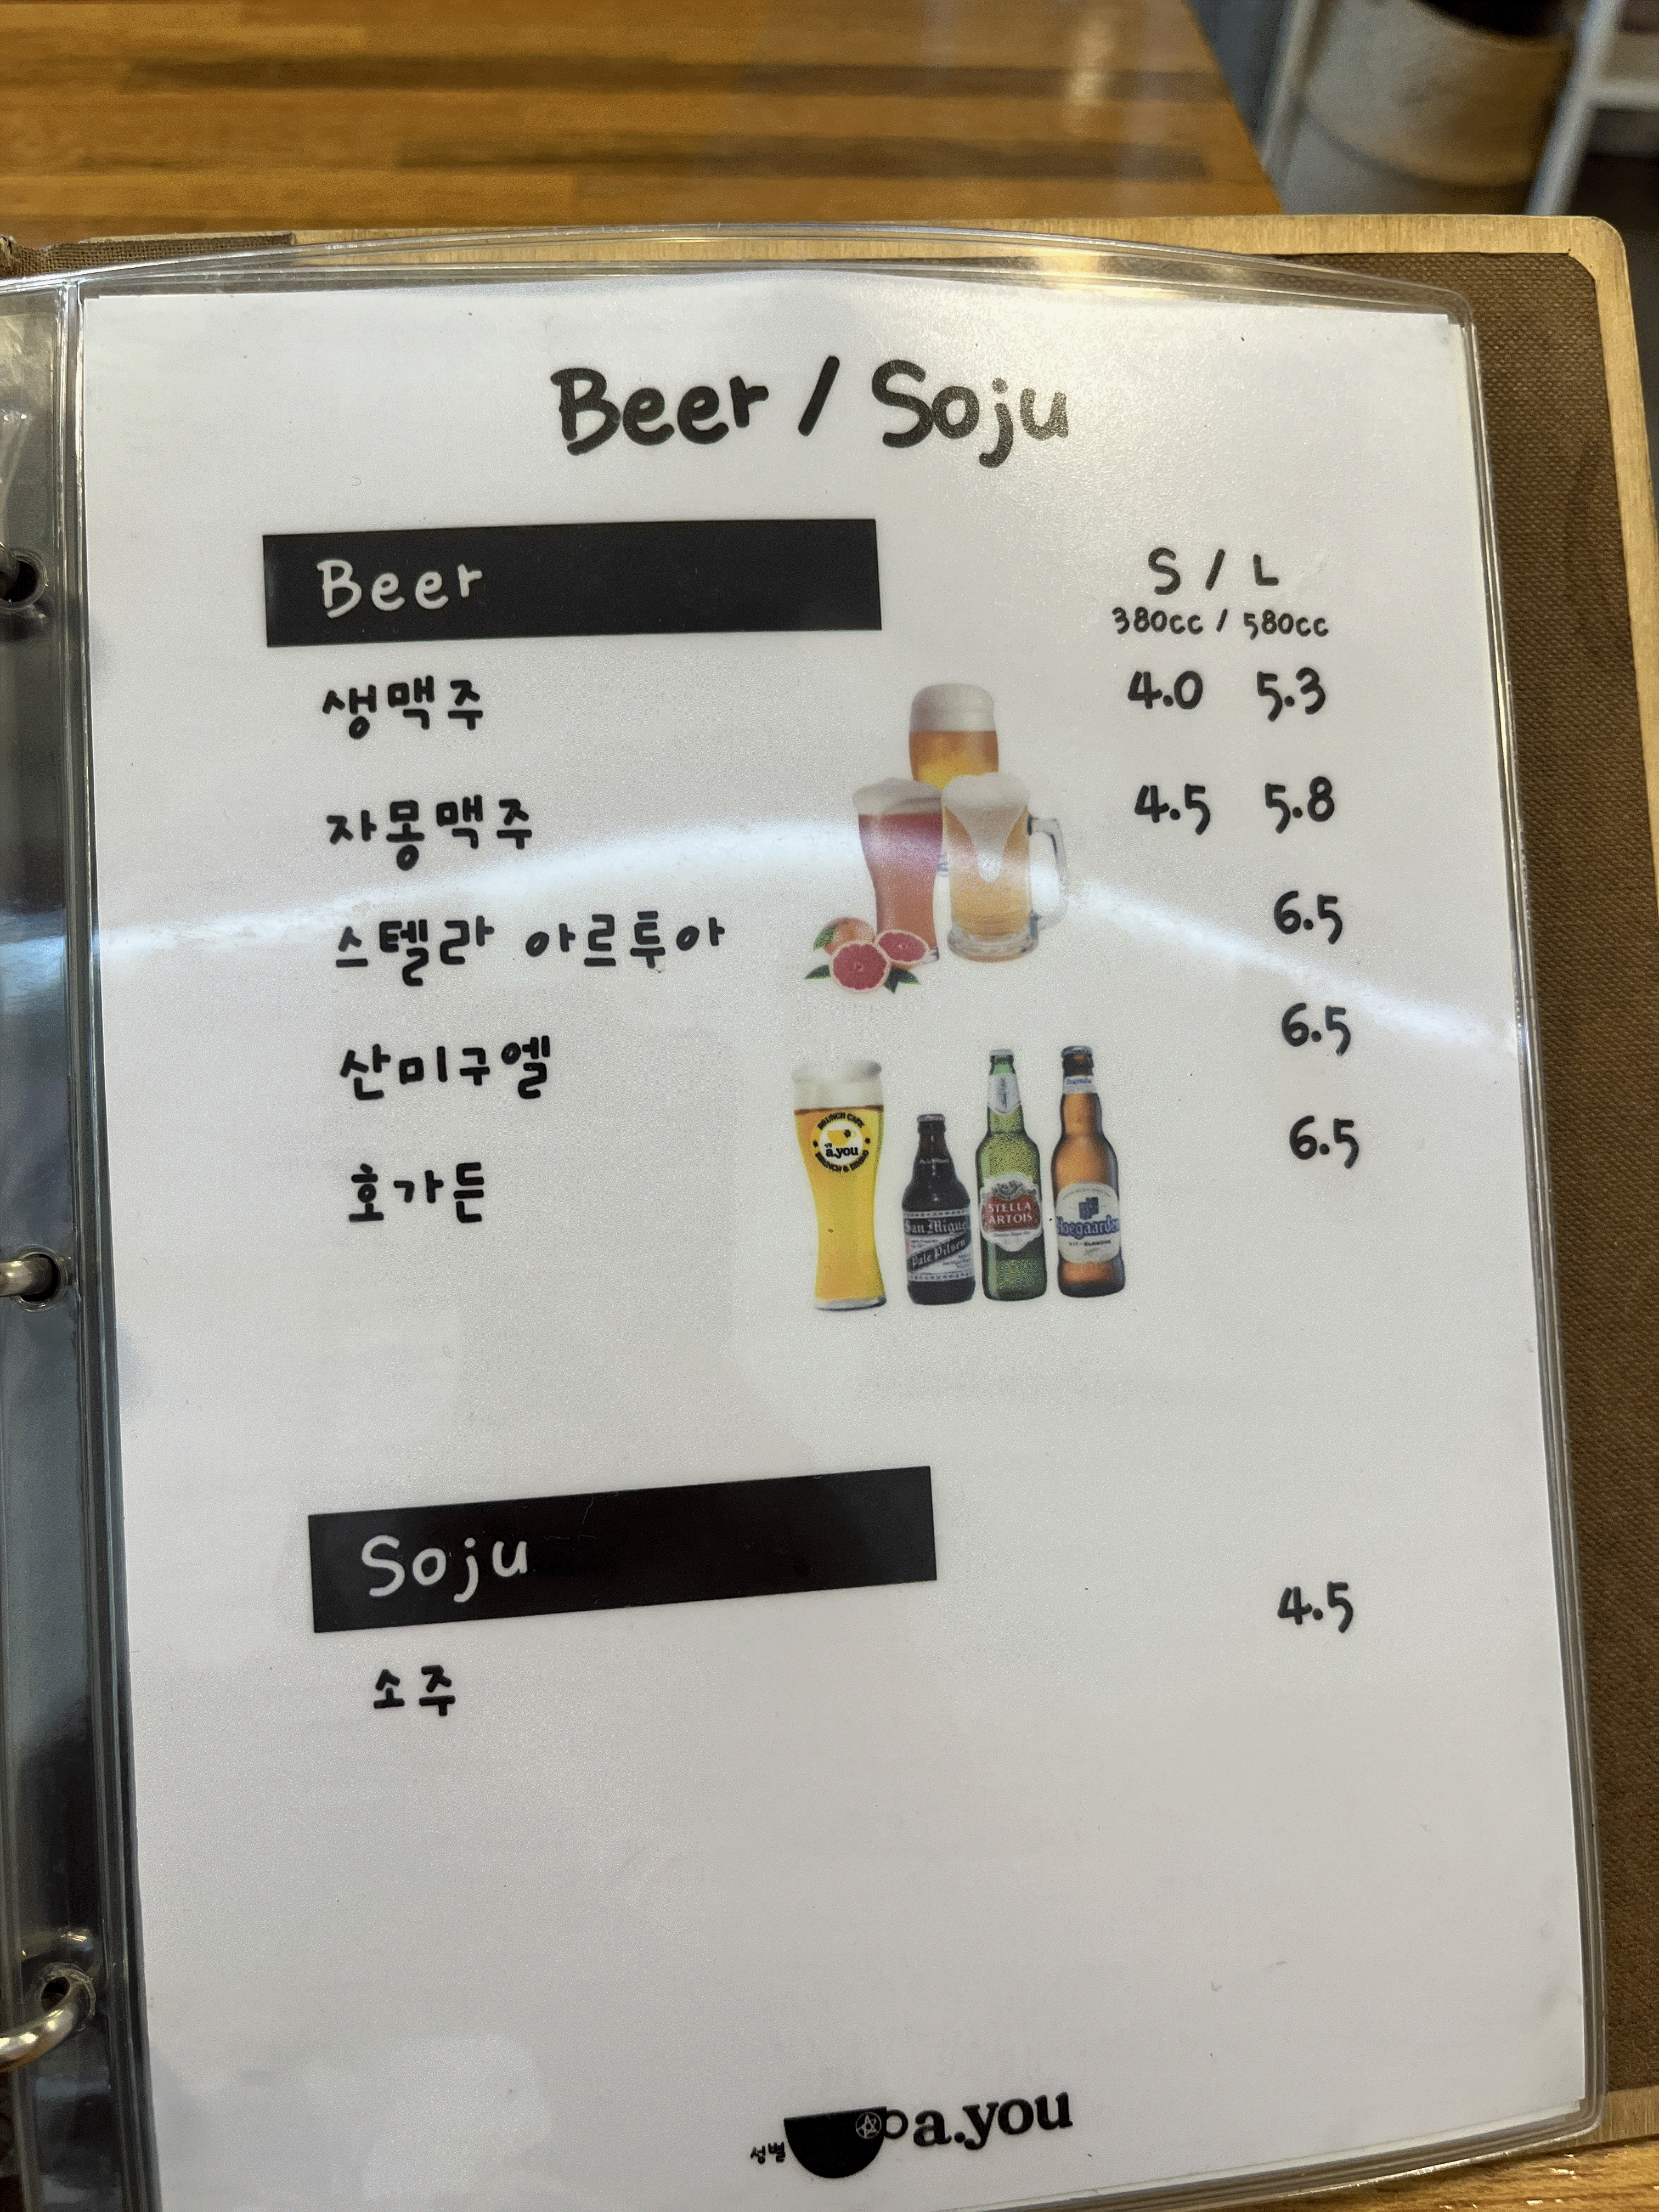 Beer / Soju
Beer
S / L
380cc / 580cc
생맥주 4.0 5.3
자몽맥주 4.5 5.8
스텔라 아르투아 6.5
산미구엘 6.5
호가든 6.5
BRUNCH CAFE
a.you
BRUNCH & DINING
San Miguel
Pale Pilsen
STELLA
ARTOIS
Hoegaarden
Soju
소주 4.5
성별 a.you